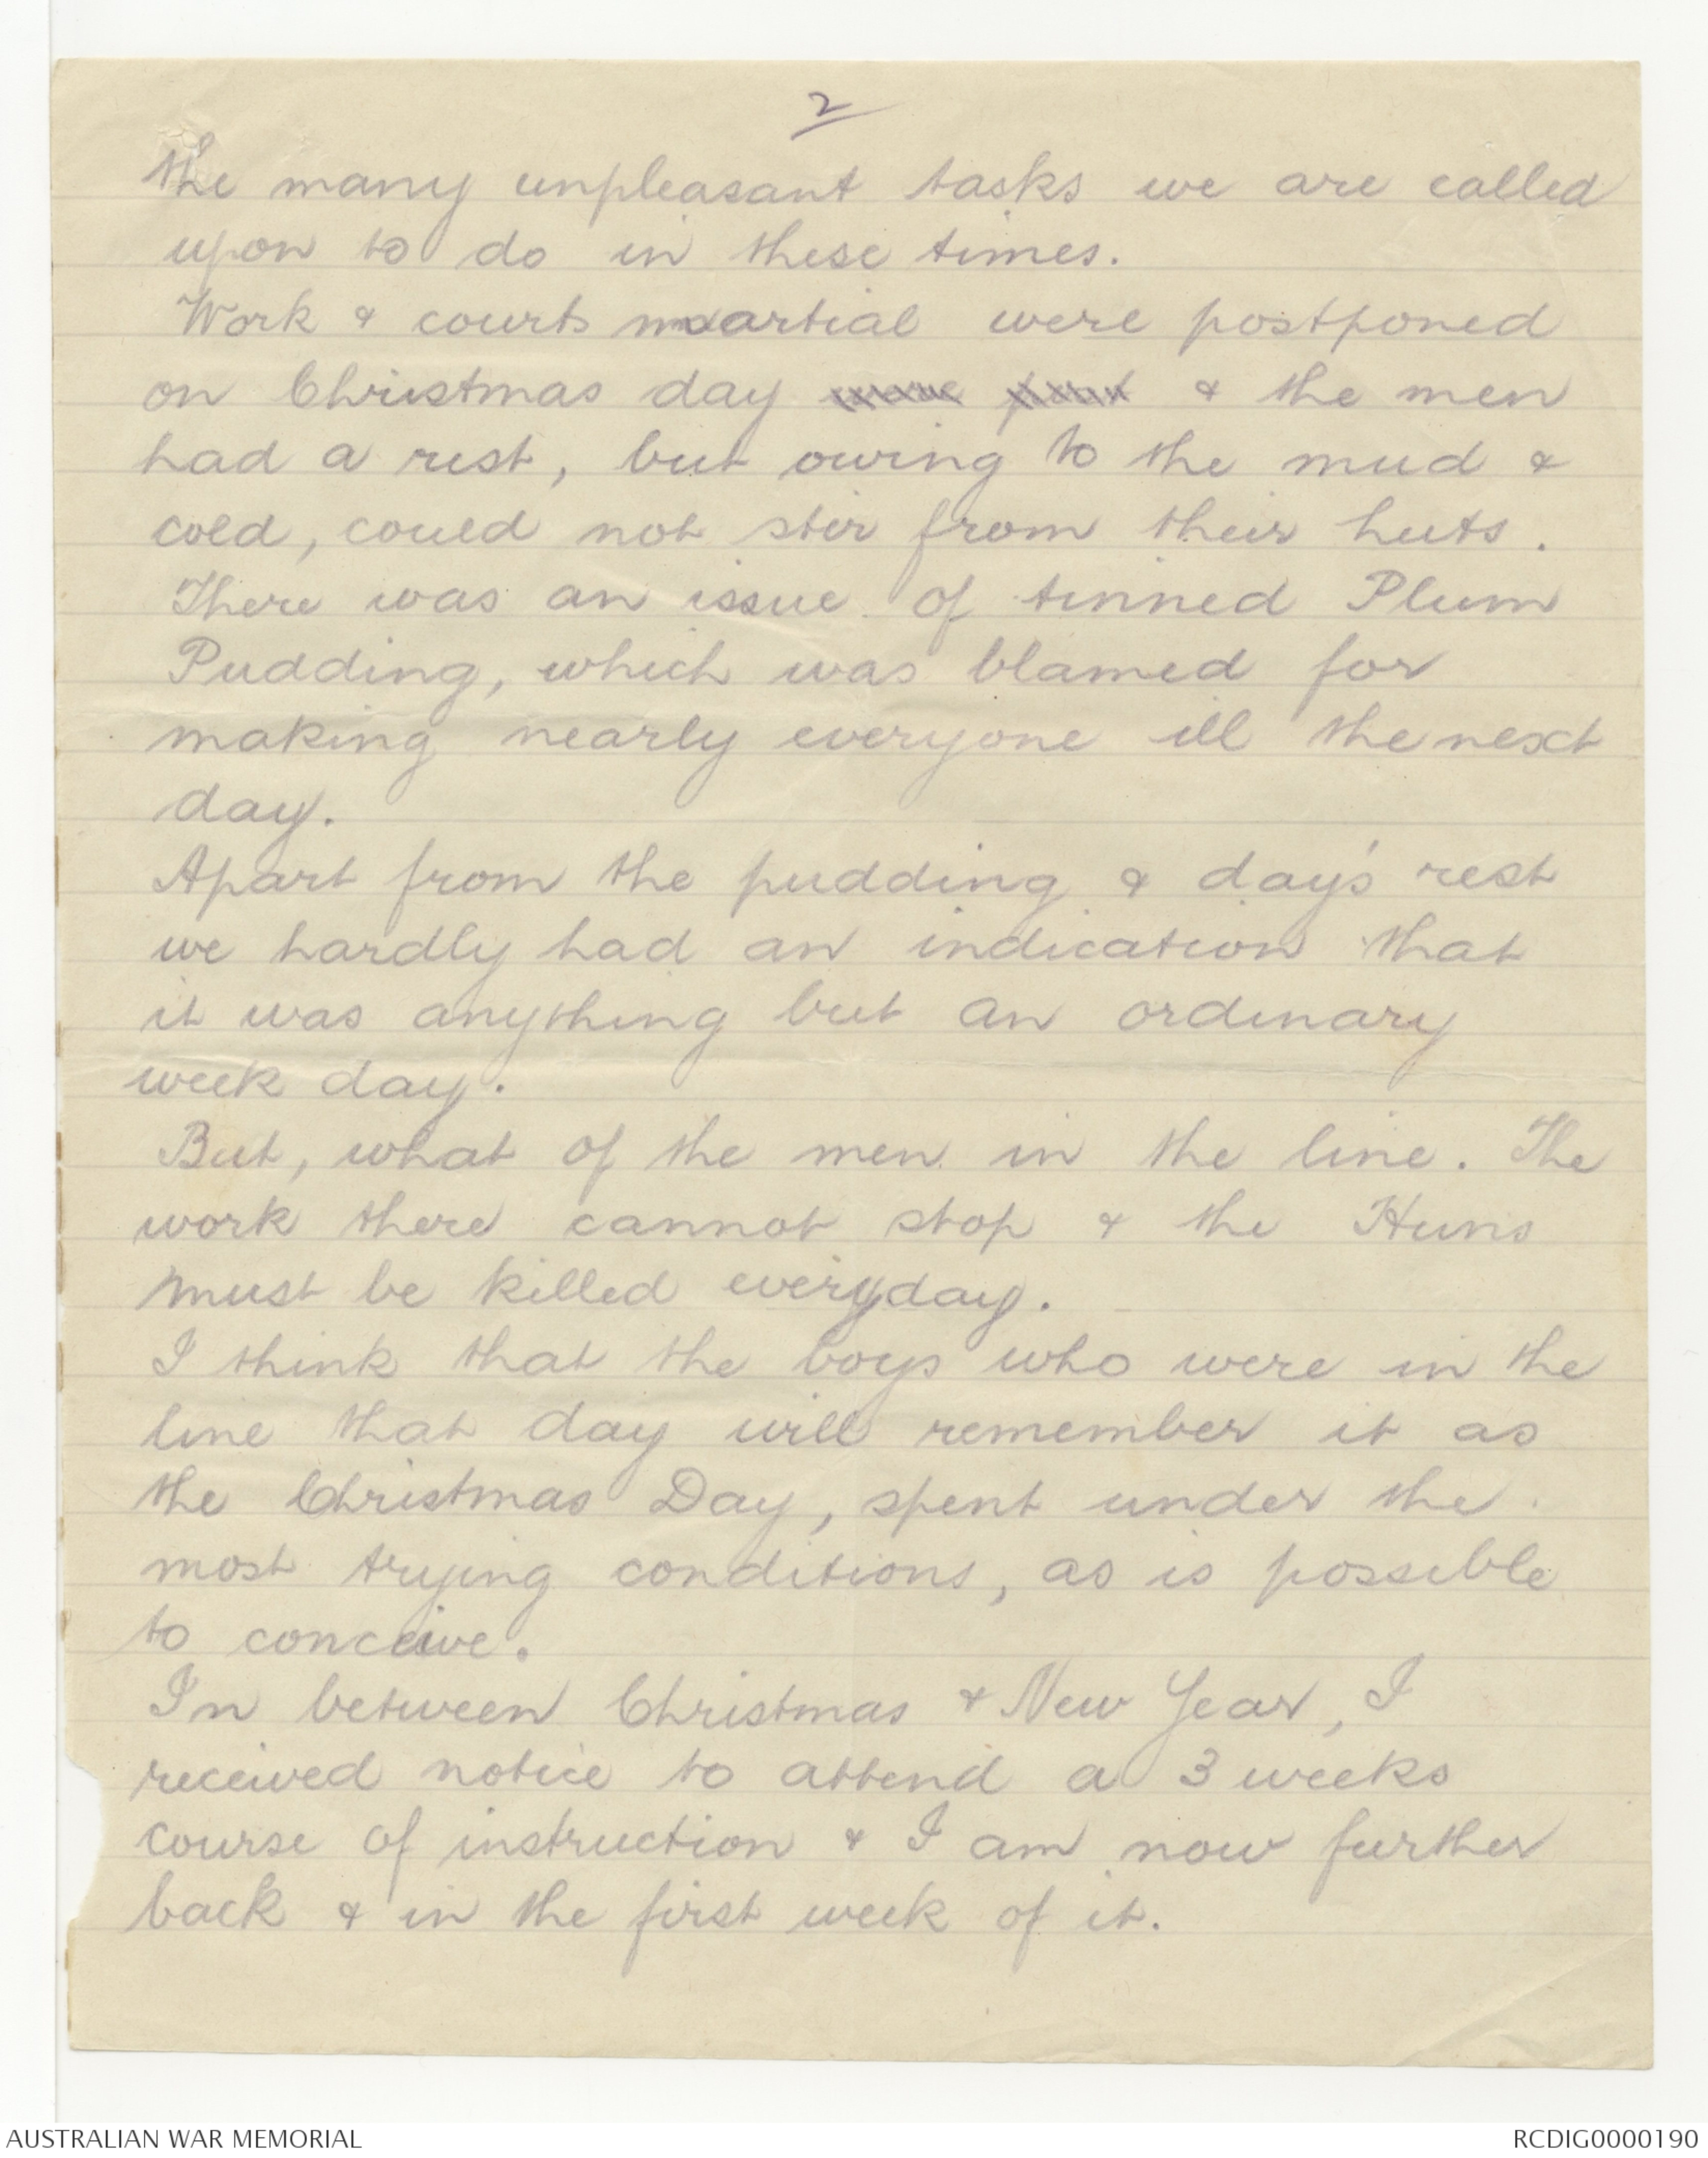 2
the many unpleasant tasks we are called
upon to do in these times.
Work & courts martial were postponed
on Christmas day & the men
had a rest, but owing to the mud &
cold, could not stir from their huts.
There was an issue of tinned Plum
Pudding, which was blamed for
making nearly everyone ill the next
day.
Apart from the pudding & day's rest
we hardly had an indication that
it was anything but an ordinary
week day.
But, what of the men in the line. The
work there cannot stop & the Huns
must be killed everyday.
I think that the boys who were in the
line that day will remember it as
the Christmas Day, spent under the
most trying conditions, as is possible
to conceive.
In between Christmas & New Year, I
received notice to attend a 3 weeks
course of instruction & I am now further
back & in the first week of it.
AUSTRALIAN WAR MEMORIAL
RCDIG0000190